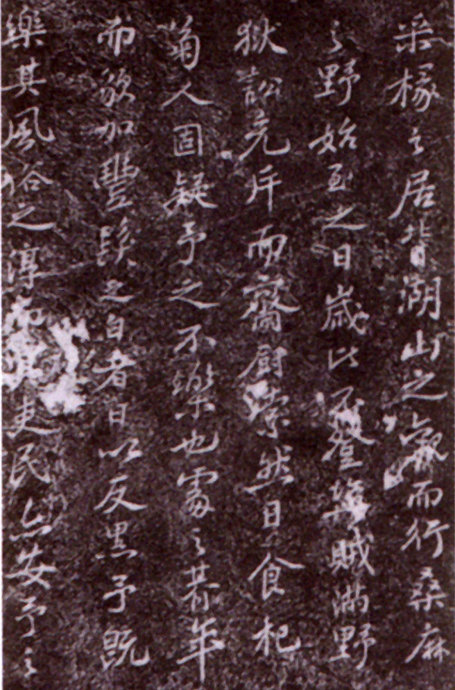 采椽之居背湖山之觀而行桑麻
之野始至之日歲比不登盜賊滿野
獄訟充斥而齋厨索然日食杞
菊人固疑予之不樂也處之朞年
而貌加豐髮之白者日以反黑予既
樂其風俗之淳而其吏民亦安予之